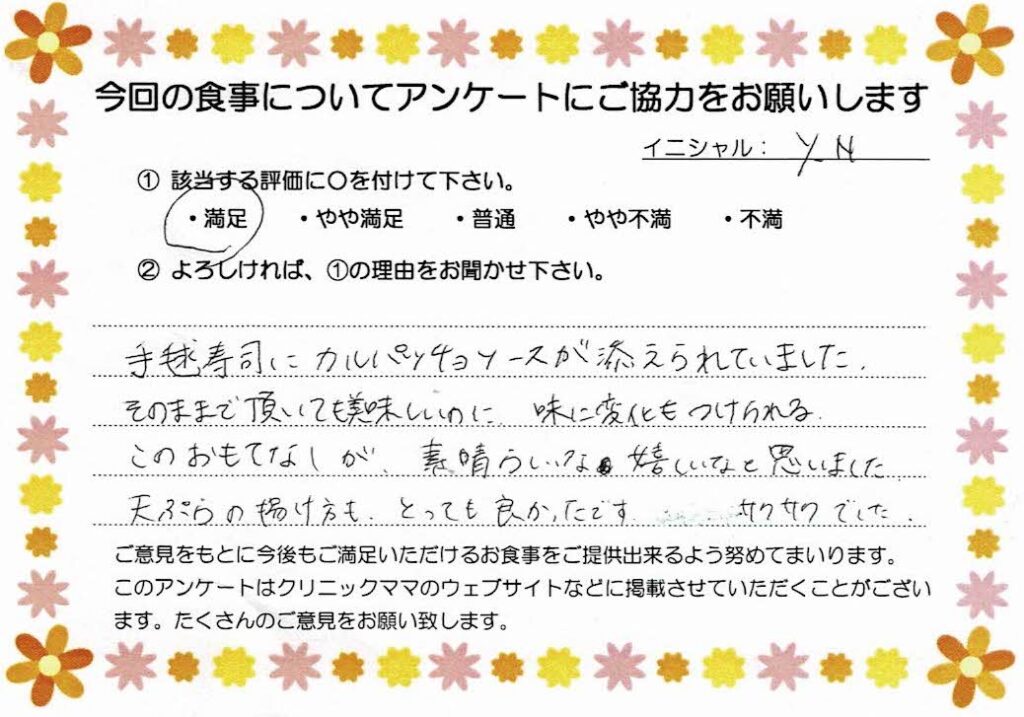 今回の食事についてアンケートにご協力をお願いします
イニシャル： Y.N
① 該当する評価に〇を付けて下さい。
・満足 ・やや満足 ・普通 ・やや不満 ・不満
② よろしければ、①の理由をお聞かせ下さい。
手毬寿司にカルパッチョソースが添えられていました。
そのままで頂いても美味しいのに、味に変化もつけられる。
このおもてなしが、素晴らしいな。嬉しいなと思いました
天ぷらの揚げ方も、とっても良かったです。 サクサクでした。
ご意見をもとに今後もご満足いただけるお食事をご提供出来るよう努めてまいります。
このアンケートはクリニックママのウェブサイトなどに掲載させていただくことがござい
ます。たくさんのご意見をお願い致します。